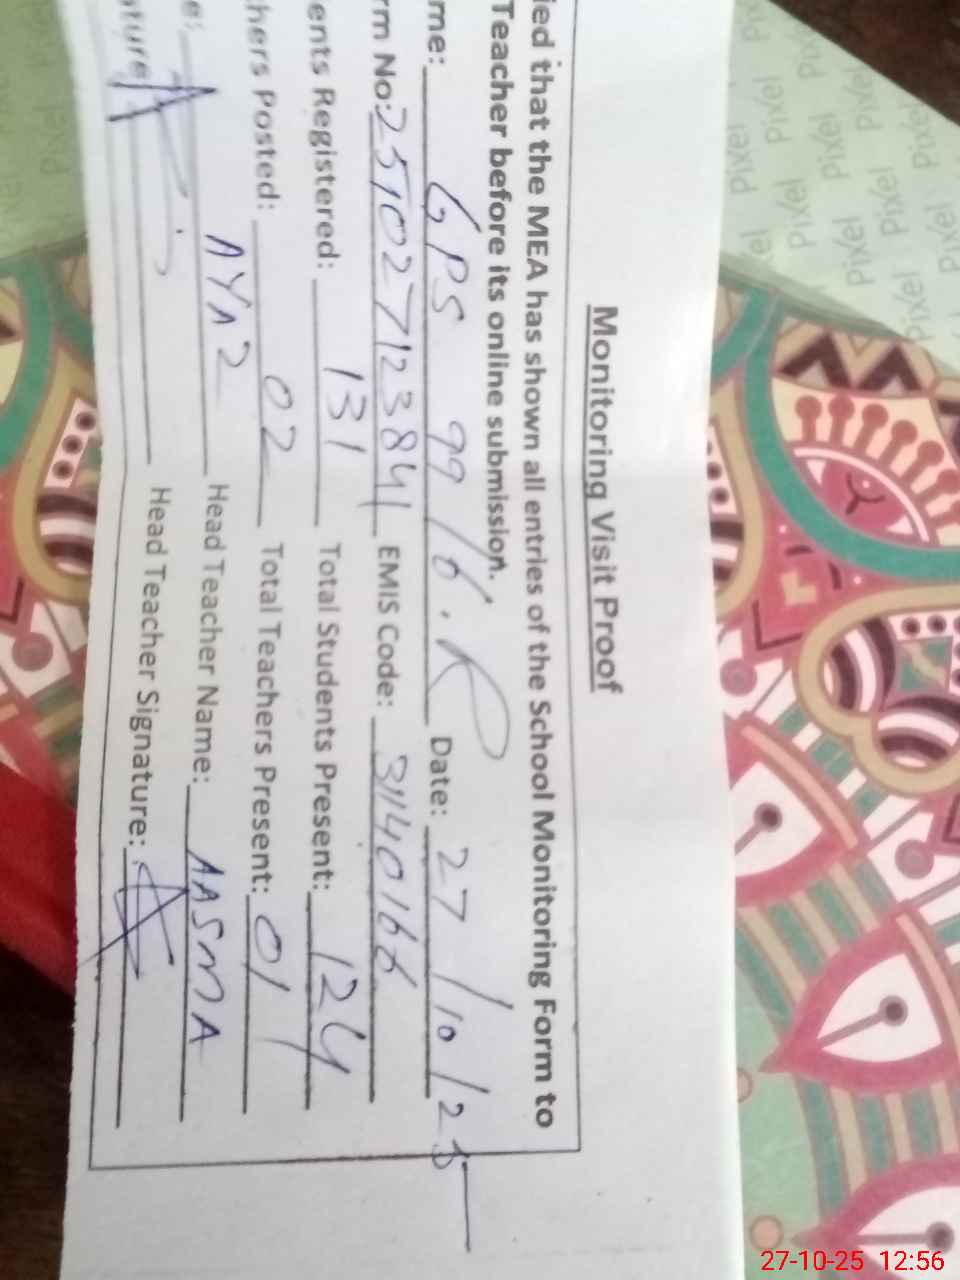 Monitoring Visit Proof
ied that the MEA has shown all entries of the School Monitoring Form to
Teacher before its online submission.
me: GPS 99/6.R Date: 27/10/25
rm No: 251027123841 EMIS Code: 31140166
ents Registered: 131 Total Students Present: 124
hers Posted: 02 Total Teachers Present: 01
e: AYAZ Head Teacher Name: AASMA
ature Head Teacher Signature:
Pixel Pixel Pixel Pixel
27-10-25 12:56